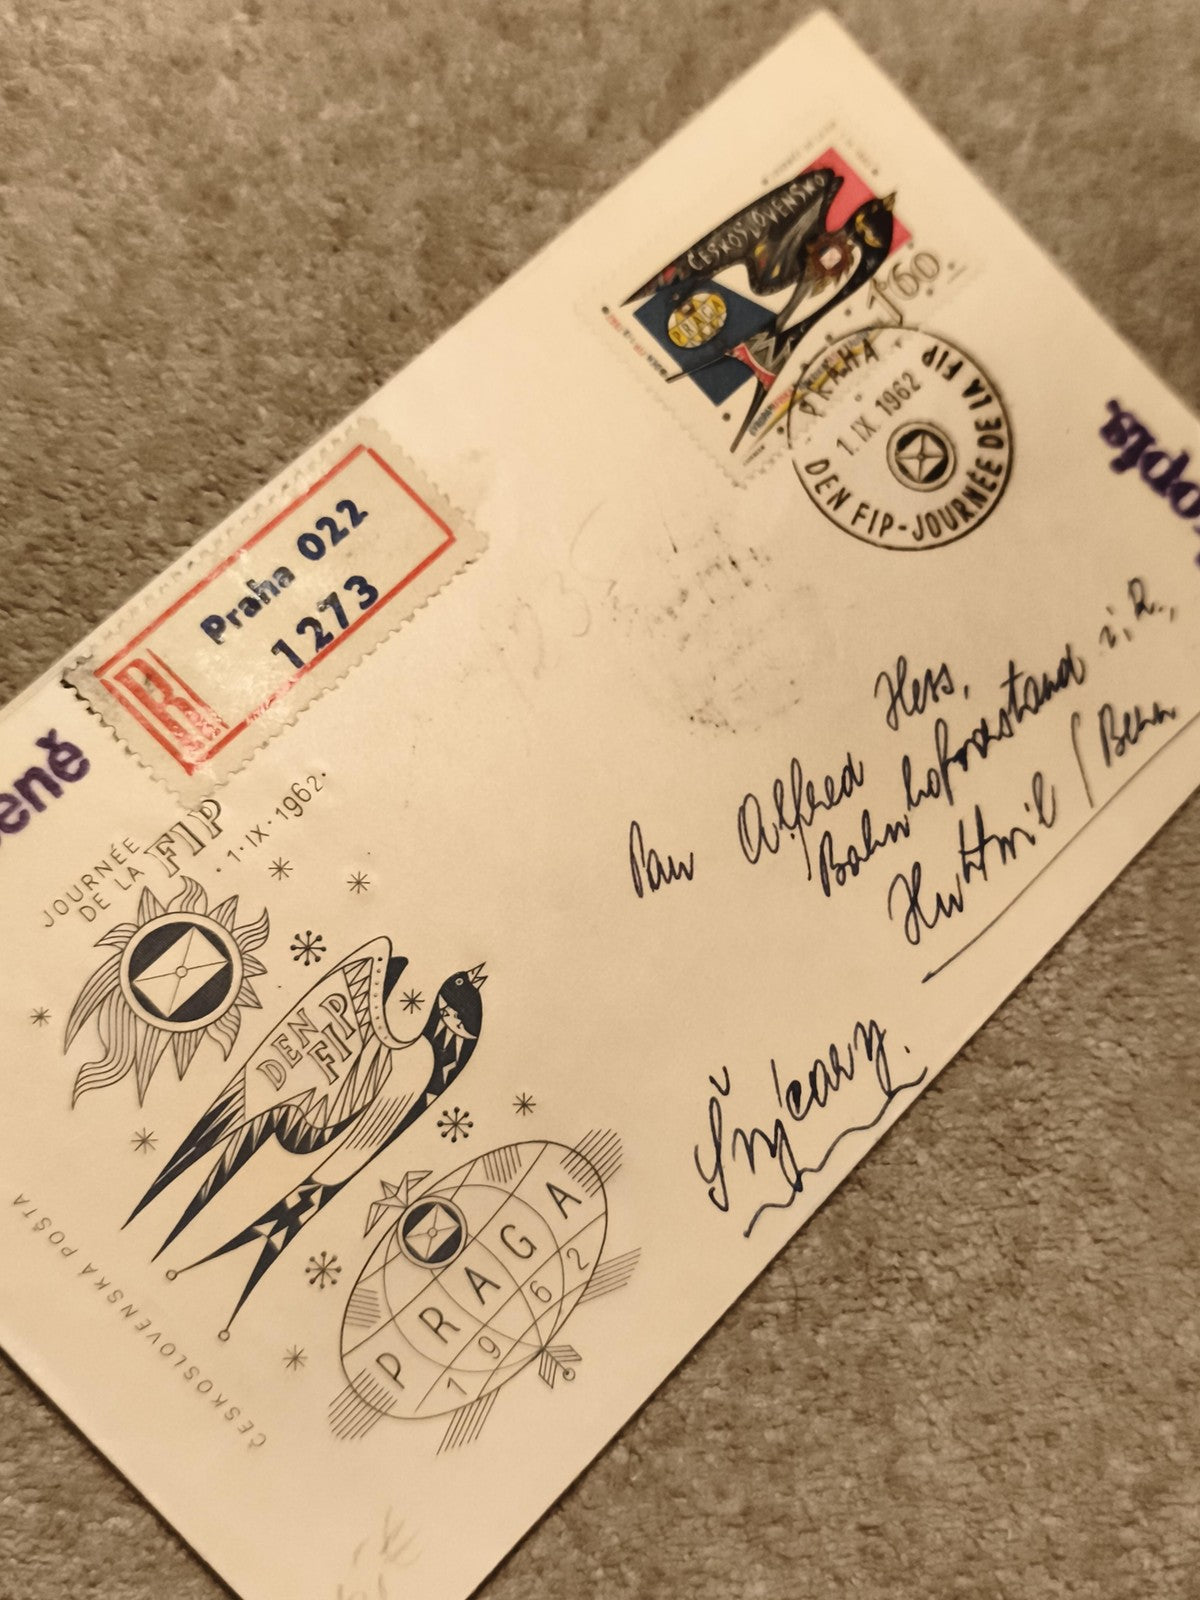 ČESKOSLOVENSKO
PRAGA
1'60
PRAHA
1.IX.1962
DEN FIP-JOURNÉE DE LA FIP
Praha 022
1273
R
eně
opis.
Pan Alfred Hess,
Bahnhofvorstand i, R.,
Huttwil / Bern
Švýcary.
JOURNÉE
DE LA FIP
1·IX·1962·
DEN
FIP
PRAGA
1962
ČESKOSLOVENSKÁ POŠTA